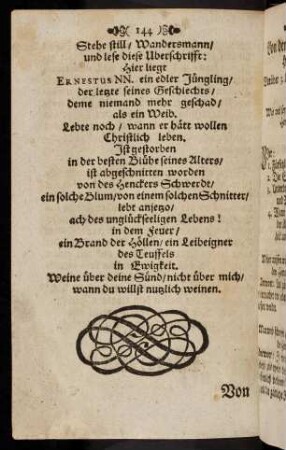 144
Stehe still/ Wandersmann/
und lese diese Uberschrifft:
Hier liegt
ERNESTUS NN. ein edler Jüngling/
der letzte seines Geschlechts/
deme niemand mehr geschad/
als ein Weib.
Lebte noch/ wann er hätt wollen
Christlich leben.
Ist gestorben
in der besten Blühe seines Alters/
ist abgeschnitten worden
von des Henckers Schwerdt/
ein solche Blum/ von einem solchen Schnitter/
lebt anjetzo/
ach des unglückseeligen Lebens!
in dem Feuer/
ein Brand der Höllen/ ein Leibeigner
des Teuffels
in Ewigkeit.
Weine über deine Sünd/ nicht über mich/
wann du willst nutzlich weinen.
Von